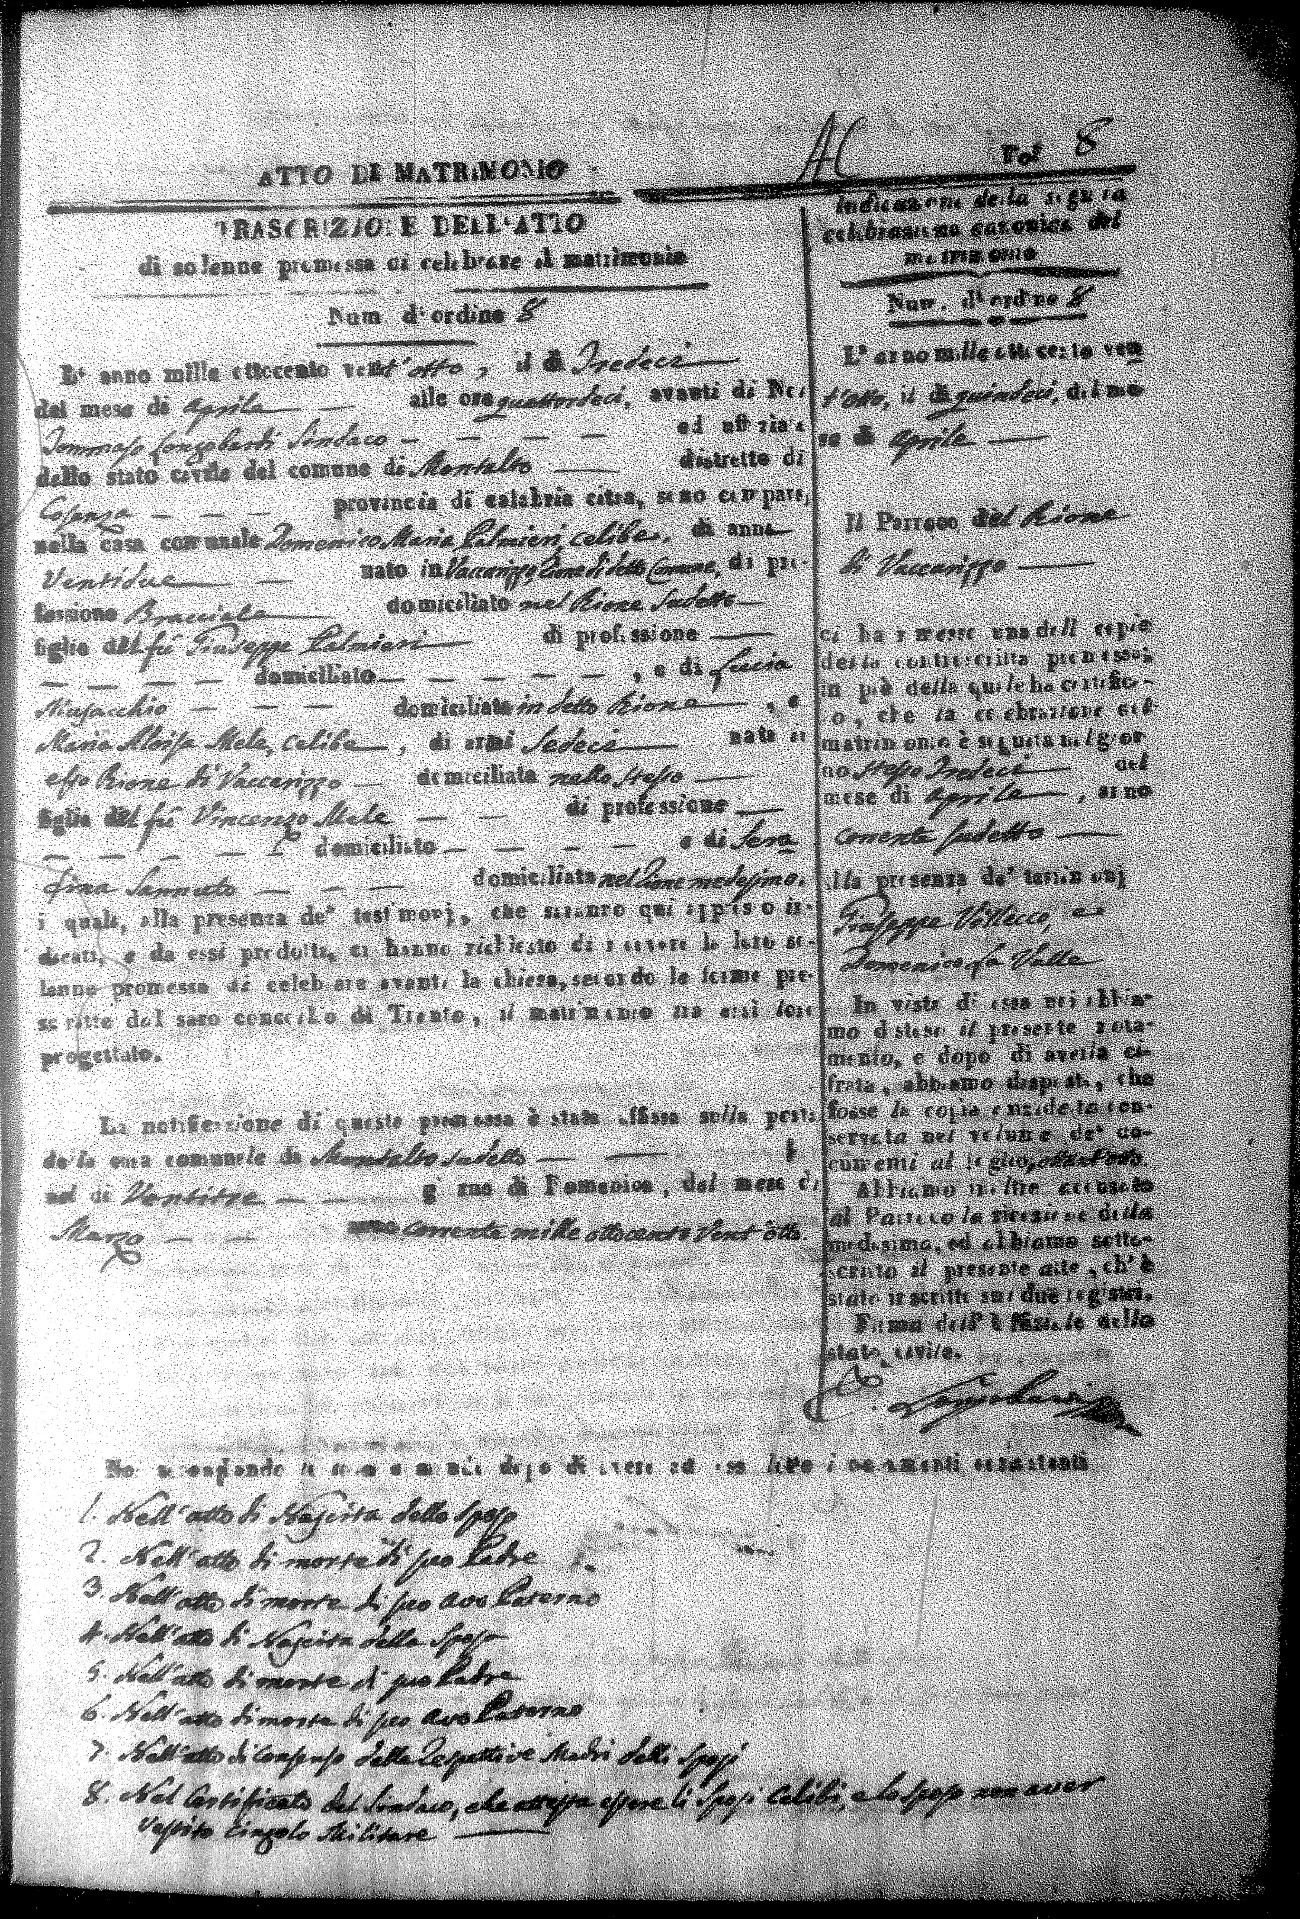 AC
Fol. 8
ATTO DI MATRIMONIO
TRASCRIZIONE DELL'ATTO
di solenne promessa di celebrare il matrimonio
Num. d'ordine 8
L'anno mille ottocento vent'otto, il dì Tredeci
del mese di Aprile alle ore quattordeci, avanti di Noi
Tommaso Longobardi Sindaco ed uffiziale
dello stato civile del comune di Montalto distretto di
Cosenza provincia di calabria citra, sono comparsi
nella casa comunale Domenico Maria Palmieri, celibe, di anni
Ventidue nato in Vaccarizzo Rione di detto Comune, di pro-
fessione Bracciale domiciliato nel Rione sudetto
figlio del fù Giuseppe Palmieri di professione
domiciliato , e di Lucia
Musacchio domiciliata in detto Rione , e
Maria Aloisa Mele, celibe , di anni Sedeci nata in
esso Rione di Vaccarizzo domiciliata nello stesso
figlia del fù Vincenzo Mele di professione
domiciliato e di Sera
fina Sannuto domiciliata nel Rione medesimo.
i quali, alla presenza de' testimonj, che saranno qui appresso in-
dicati, e da essi prodotti, ci hanno richiesto di ricevere la loro so-
lenne promessa di celebrare avanti la chiesa, secondo le forme pre-
scritte dal sacro concilio di Trento, il matrimonio tra essi loro
progettato.
La notificazione di questa promessa è stata affissa sulla porta
della casa comunale di Montalto sudetto
nel dì Ventitre giorno di Domenica, del mese di
Marzo anno corrente mille ottocento Vent'otto.
Indicazione della seguita
celebrazione canonica del
matrimonio
Num. d'ordine 8
L'anno mille ottocento ven
t'otto, il dì quindeci, del me-
se di Aprile
Il Parroco del Rione
di Vaccarizzo
ci ha rimesse una delle copie
della controscritta promessa,
in piè della quale ha certifica-
to, che la celebrazione del
matrimonio è seguita nel gior-
no stesso Tredeci del
mese di Aprile , anno
corrente sudetto
alla presenza de' testimonj
Giuseppe Vitlecco, e
Domenico La Valle
In vista di essa noi abbia-
mo disteso il presente nota-
mento, e dopo di averla ci-
frata, abbiamo disposto, che
fosse la copia anzidetta con-
servata nel volume de' do-
cumenti al foglio, ottant'otto.
Abbiamo inoltre accusato
al Parroco la ricezione della
medesima, ed abbiamo sotto-
scritto il presente atto, ch'è
stato inscritto sui due registri.
Firma dell'Uffiziale dello
stato civile.
Longobardi
1. Nell'atto di Nascita dello sposo
2. Nell'atto di morte di suo Padre
3. Nell'atto di morte di suo avo Paterno
4. Nell'atto di Nascita della sposa
5. Nell'atto di morte di suo Padre
6. Nell'atto di morte di suo avo Paterno
7. Nell'atto di consenso delle respettive Madri delli sposi
8. Nel Certificato del Sindaco, che attessa essere li sposi Celibi, e lo sposo non aver
vestito cingolo Militare